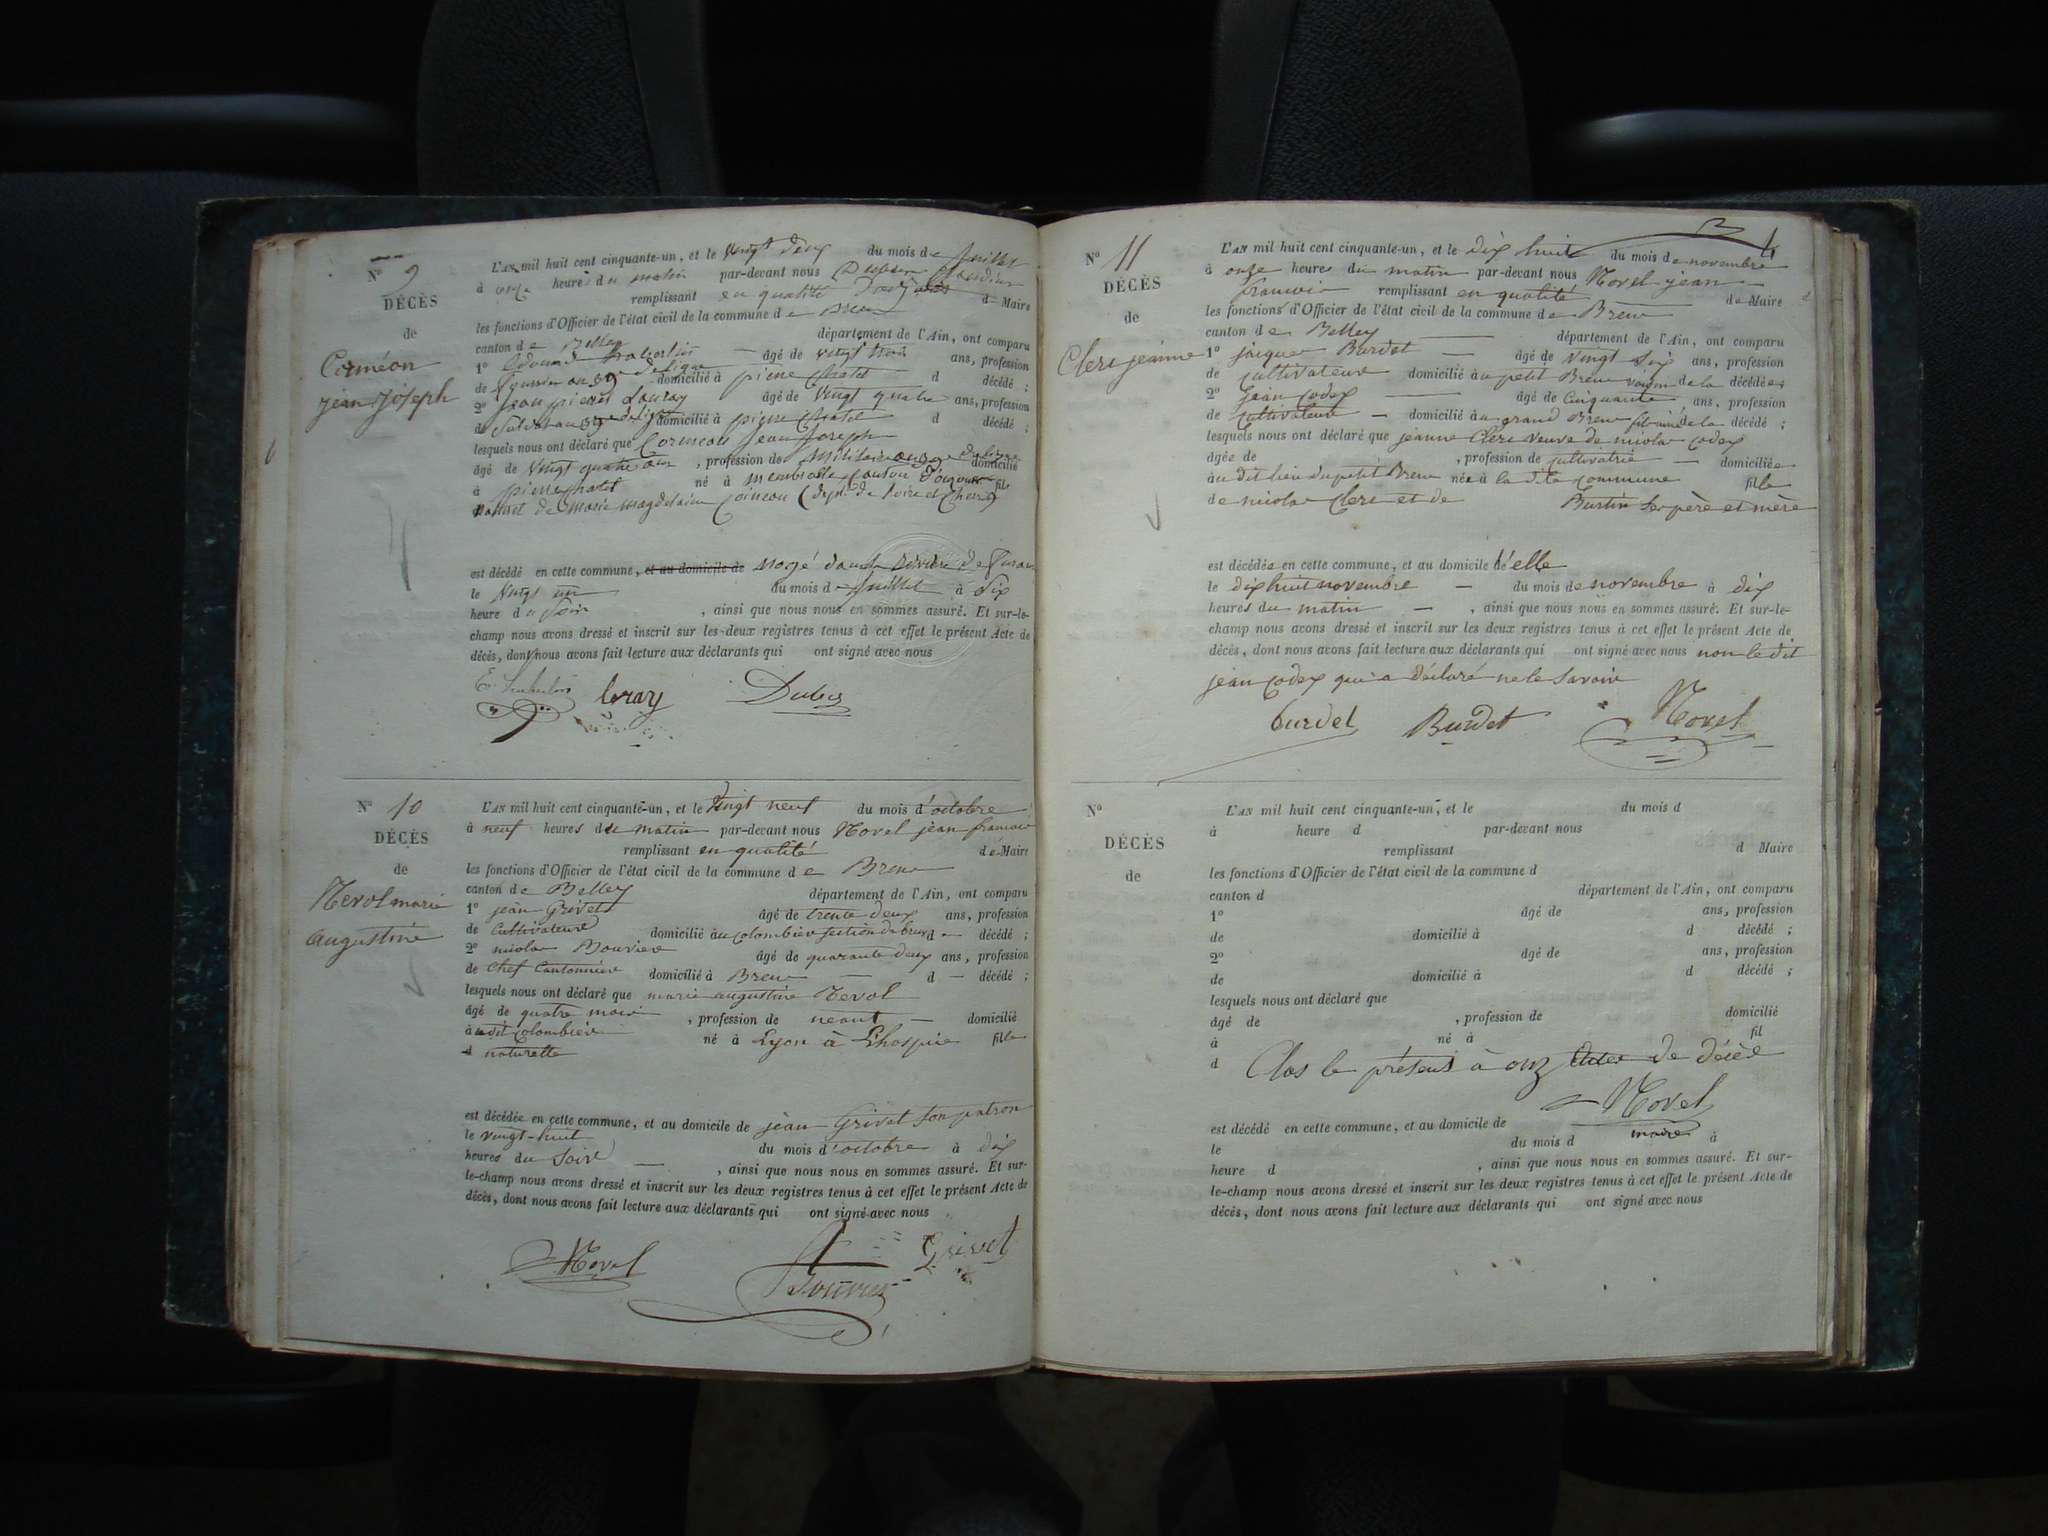 N° 9
DÉCÈS
de
jean joseph
L'AN mil huit cent cinquante-un, et le vingt deux du mois de juillet
à onze heures du matin par-devant nous
remplissant en qualité d Maire
les fonctions d'Officier de l'état civil de la commune de Bren
canton de Belley département de l'Ain, ont comparu
1° Edouard âgé de vingt trois ans, profession
de domicilié à pierre Chatel d décédé ;
2° Jean pierre âgé de vingt quatre ans, profession
de domicilié à pierre Chatel d décédé ;
lesquels nous ont déclaré que Jean Joseph
âgé de vingt quatre ans, profession de Militaire au 39e de ligne domicilié
à pierre chatel né à Canton fils
de marie magdelaine
est décédé en cette commune, et au domicile de
le vingt un du mois de juillet à six
heure du soir, ainsi que nous nous en sommes assuré. Et sur-le-
champ nous avons dressé et inscrit sur les deux registres tenus à cet effet le présent Acte de
décès, dont nous avons fait lecture aux déclarants qui ont signé avec nous
N° 10
DÉCÈS
de
Nevol marie
augustine
L'AN mil huit cent cinquante-un, et le Vingt neuf du mois d'octobre
à neuf heures de matin par-devant nous Novel jean francois
remplissant en qualité de Maire
les fonctions d'Officier de l'état civil de la commune de Bren
canton de Belley département de l'Ain, ont comparu
1° jean Grivet âgé de trente deux ans, profession
de Cultivateur domicilié au colombier section de d décédé ;
2° nicolas Bouvier âgé de quarante deux ans, profession
de Chef Cantonnier domicilié à Bren — d — décédé ;
lesquels nous ont déclaré que marie augustine Nevol
âgé de quatre mois, profession de néant — domicilié
audit colombier né à Lyon à L'hospice fille
d naturelle
est décédée en cette commune, et au domicile de jean Grivet son patron
le vingt-huit du mois d'octobre à dix
heures du Soir —, ainsi que nous nous en sommes assuré. Et sur-
le-champ nous avons dressé et inscrit sur les deux registres tenus à cet effet le présent Acte de
décès, dont nous avons fait lecture aux déclarants qui ont signé avec nous
Novel Bouvier Grivet
N° 11
DÉCÈS
de
Clerc jeanne
L'AN mil huit cent cinquante-un, et le dix huit du mois de novembre
à onze heures du matin par-devant nous Novel jean
francois remplissant en qualité de Maire
les fonctions d'Officier de l'état civil de la commune de Bren
canton de Belley département de l'Ain, ont comparu
1° jacques Burdet — âgé de vingt six ans, profession
de cultivateur domicilié au petit Bren voisin de la décédée
2° jean codex — âgé de cinquante ans, profession
de cultivateur — domicilié au grand Bren de la décédé ;
lesquels nous ont déclaré que jeanne Clerc veuve de nicolas codex
âgée de , profession de cultivatrice — domiciliée
au dit lieu du petit Bren née à la dite commune fille
de nicolas Clerc et de Burtin ses père et mère
est décédée en cette commune, et au domicile d'elle
le dix huit novembre — du mois de novembre à dix
heures du matin —, ainsi que nous nous en sommes assuré. Et sur-le-
champ nous avons dressé et inscrit sur les deux registres tenus à cet effet le présent Acte de
décès, dont nous avons fait lecture aux déclarants qui ont signé avec nous non le dit
jean codex qui a déclaré ne le savoir
burdet Burdet Novel
N°
DÉCÈS
de
L'AN mil huit cent cinquante-un, et le du mois d
à heure d par-devant nous
remplissant d Maire
les fonctions d'Officier de l'état civil de la commune d
canton d département de l'Ain, ont comparu
1° âgé de ans, profession
de domicilié à d décédé ;
2° âgé de ans, profession
de domicilié à d décédé ;
lesquels nous ont déclaré que
âgé de , profession de domicilié
à né à fil
d Clos le présent à onz actes de décès
Novel
est décédé en cette commune, et au domicile de maire
le du mois d à
heure d , ainsi que nous nous en sommes assuré. Et sur-
le-champ nous avons dressé et inscrit sur les deux registres tenus à cet effet le présent Acte de
décès, dont nous avons fait lecture aux déclarants qui ont signé avec nous